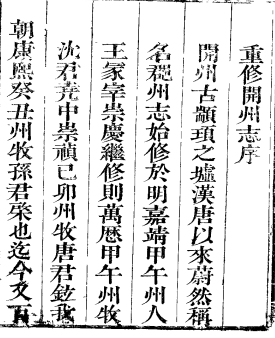 重修開州志序
開州古顓頊之墟漢唐以來蔚然稱
名郡州志始修於明嘉靖甲午州人
王家宰崇慶繼修則萬歷甲午州牧
沈君堯中崇禎己卯州牧唐君鉉我
朝康熙癸丑州牧孫君棨也迄今又百